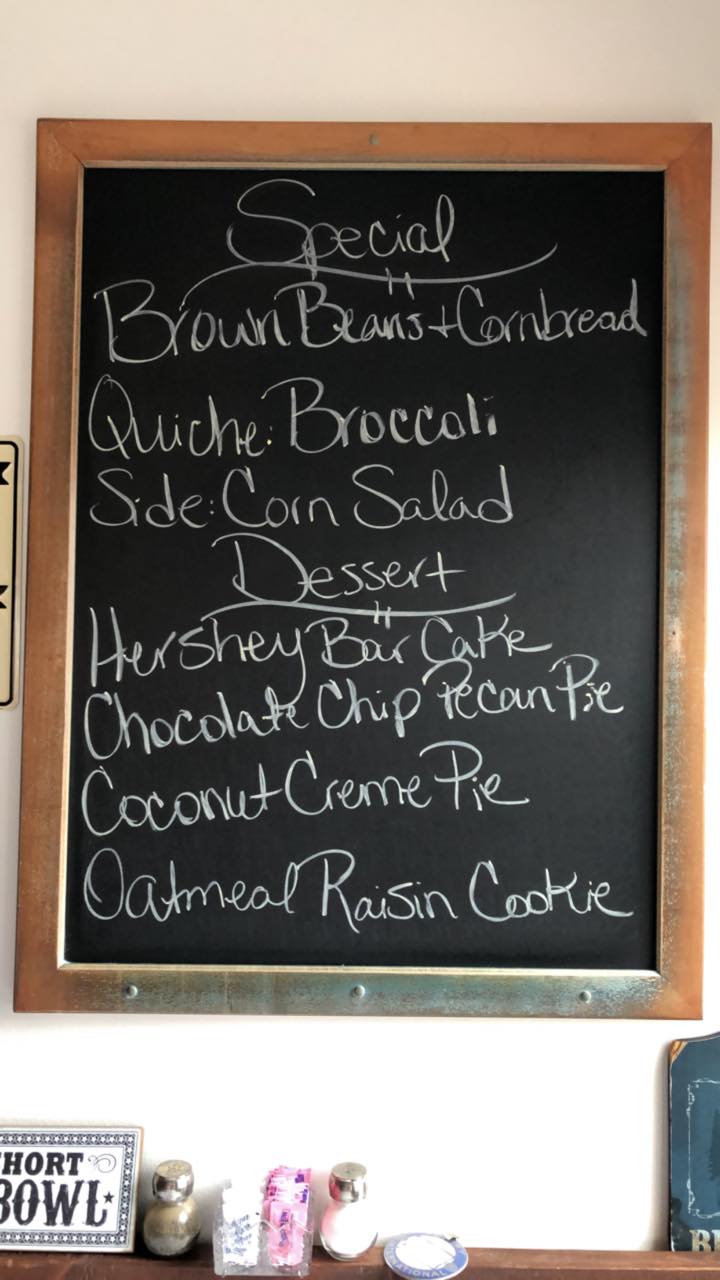 Special
Brown Beans + Cornbread
Quiche: Broccoli
Side: Corn Salad
Dessert
Hershey Bar Cake
Chocolate Chip Pecan Pie
Coconut Creme Pie
Oatmeal Raisin Cookie
HORT
BOWL